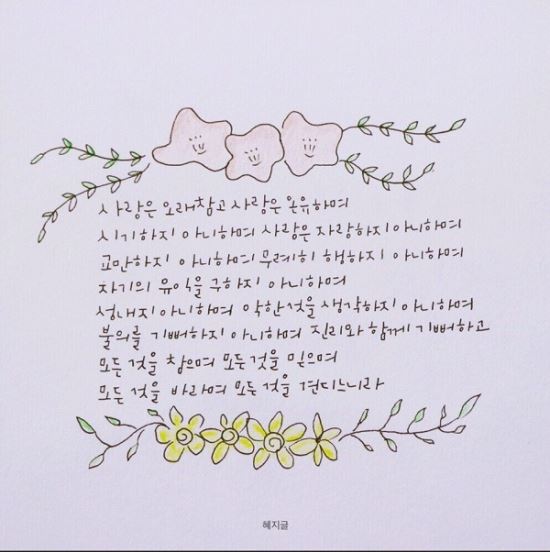 사랑은 오래참고 사랑은 온유하며
시기하지 아니하며 사랑은 자랑하지 아니하며
교만하지 아니하며 무례히 행하지 아니하며
자기의 유익을 구하지 아니하며
성내지 아니하며 악한것을 생각하지 아니하며
불의를 기뻐하지 아니하며 진리와 함께 기뻐하고
모든 것을 참으며 모든 것을 믿으며
모든 것을 바라며 모든 것을 견디느니라
혜지글